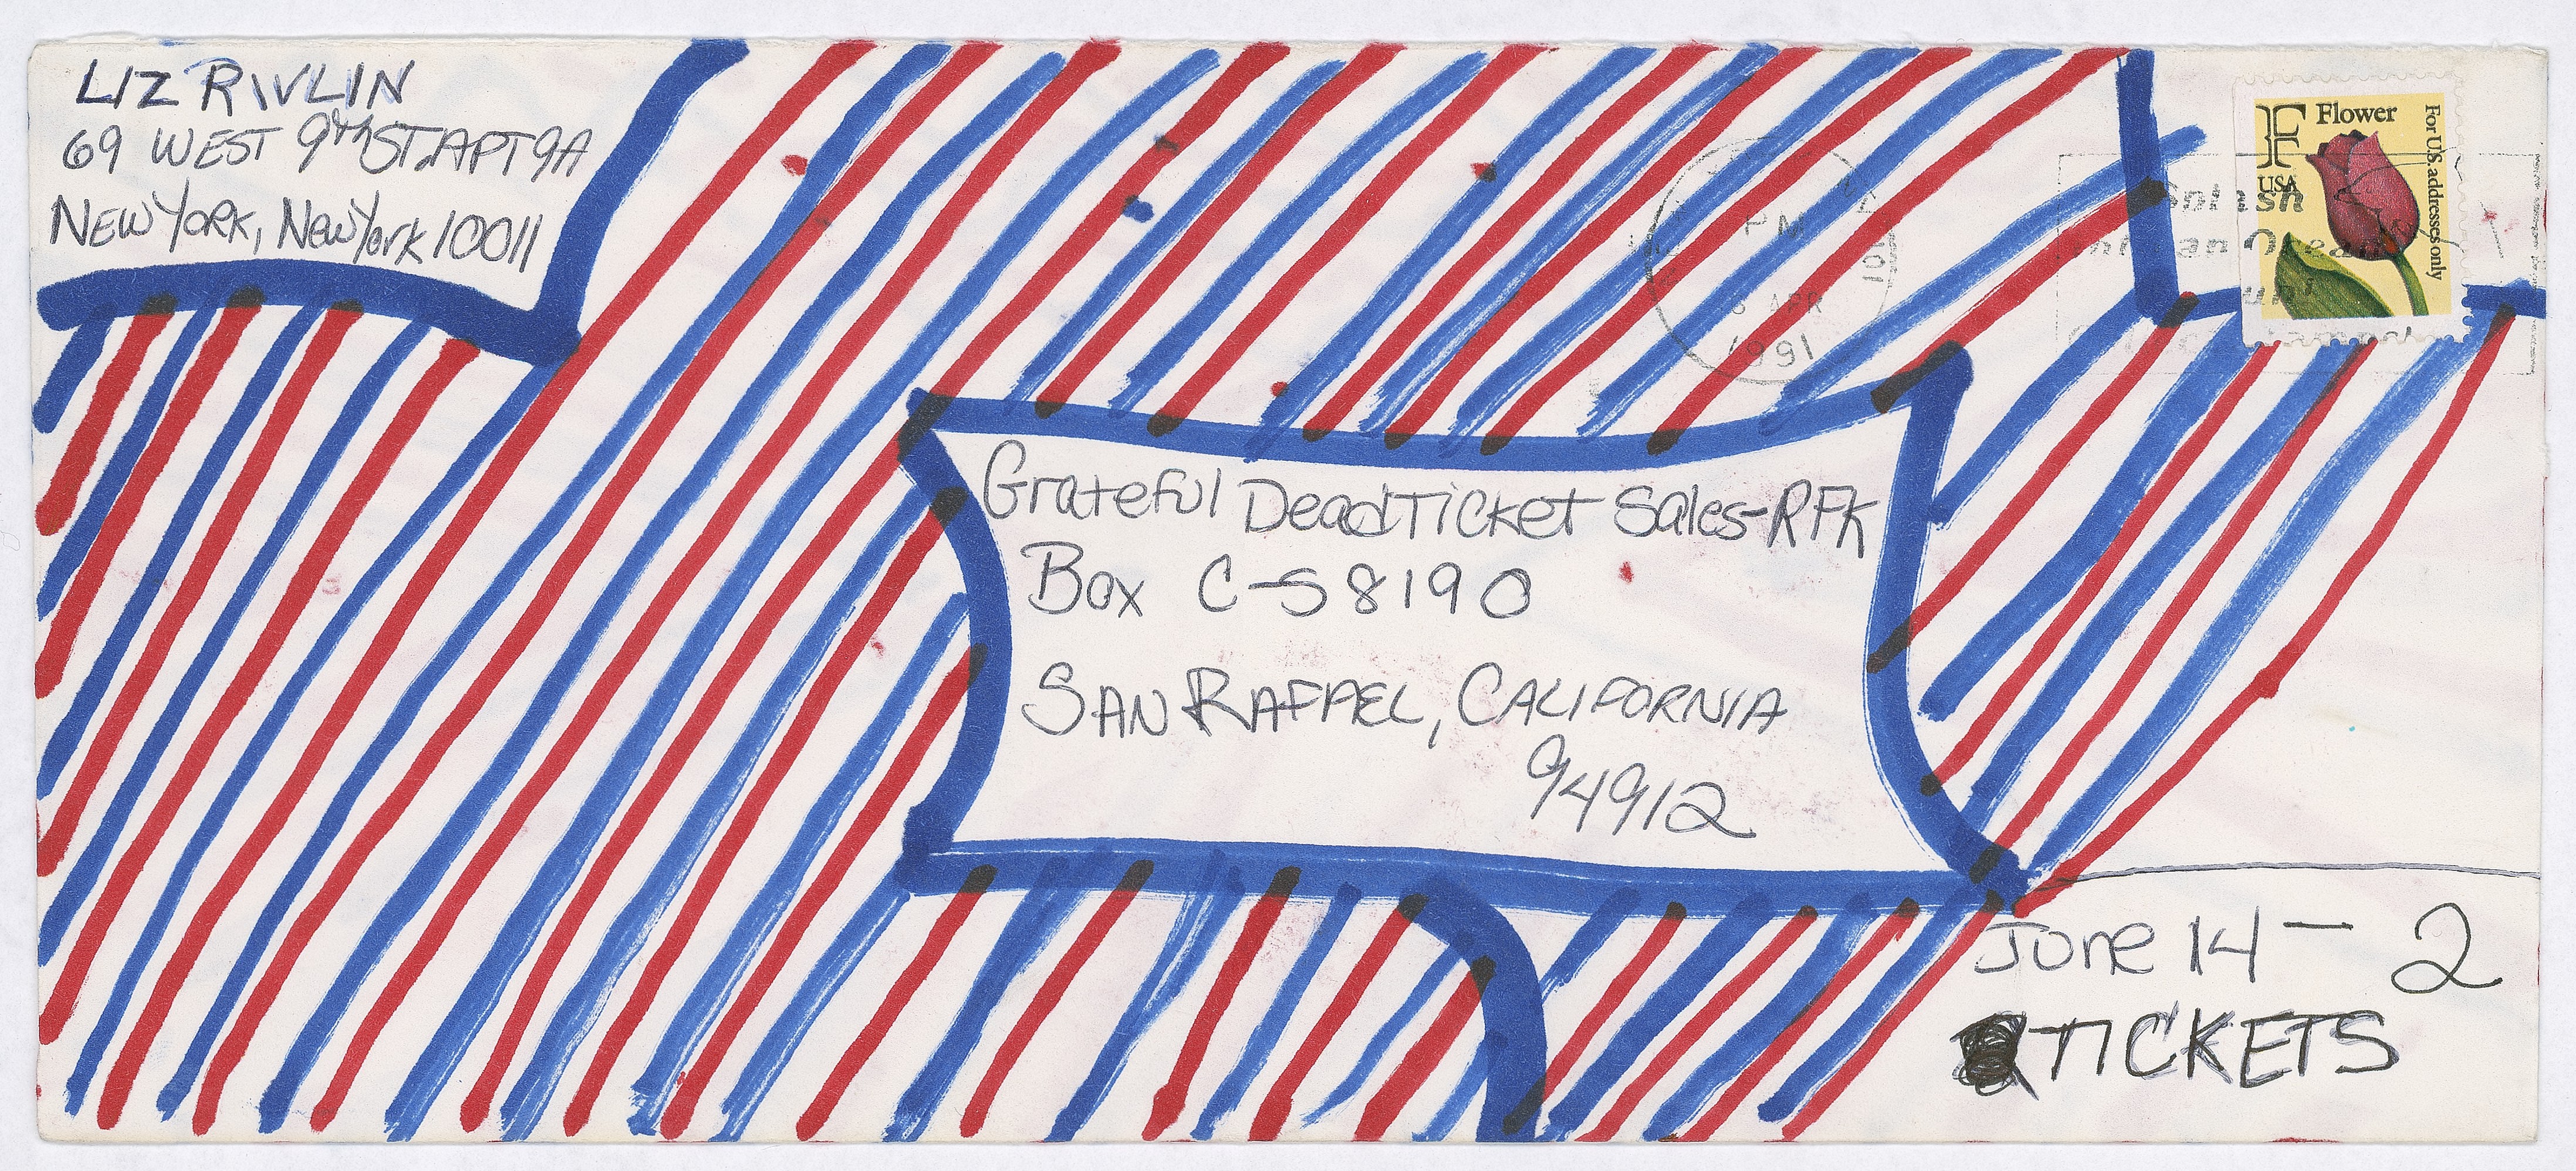 LIZ RIVLIN
69 WEST 9th ST. APT 9A
NEW YORK, New York 10011
F Flower
USA
For U.S. addresses only
PM
APR
1991
Splash
an Ocean
Grateful Dead Ticket Sales-RFK
Box C-S8190
SAN RAFAEL, CALIFORNIA
94912
June 14 — 2
TICKETS